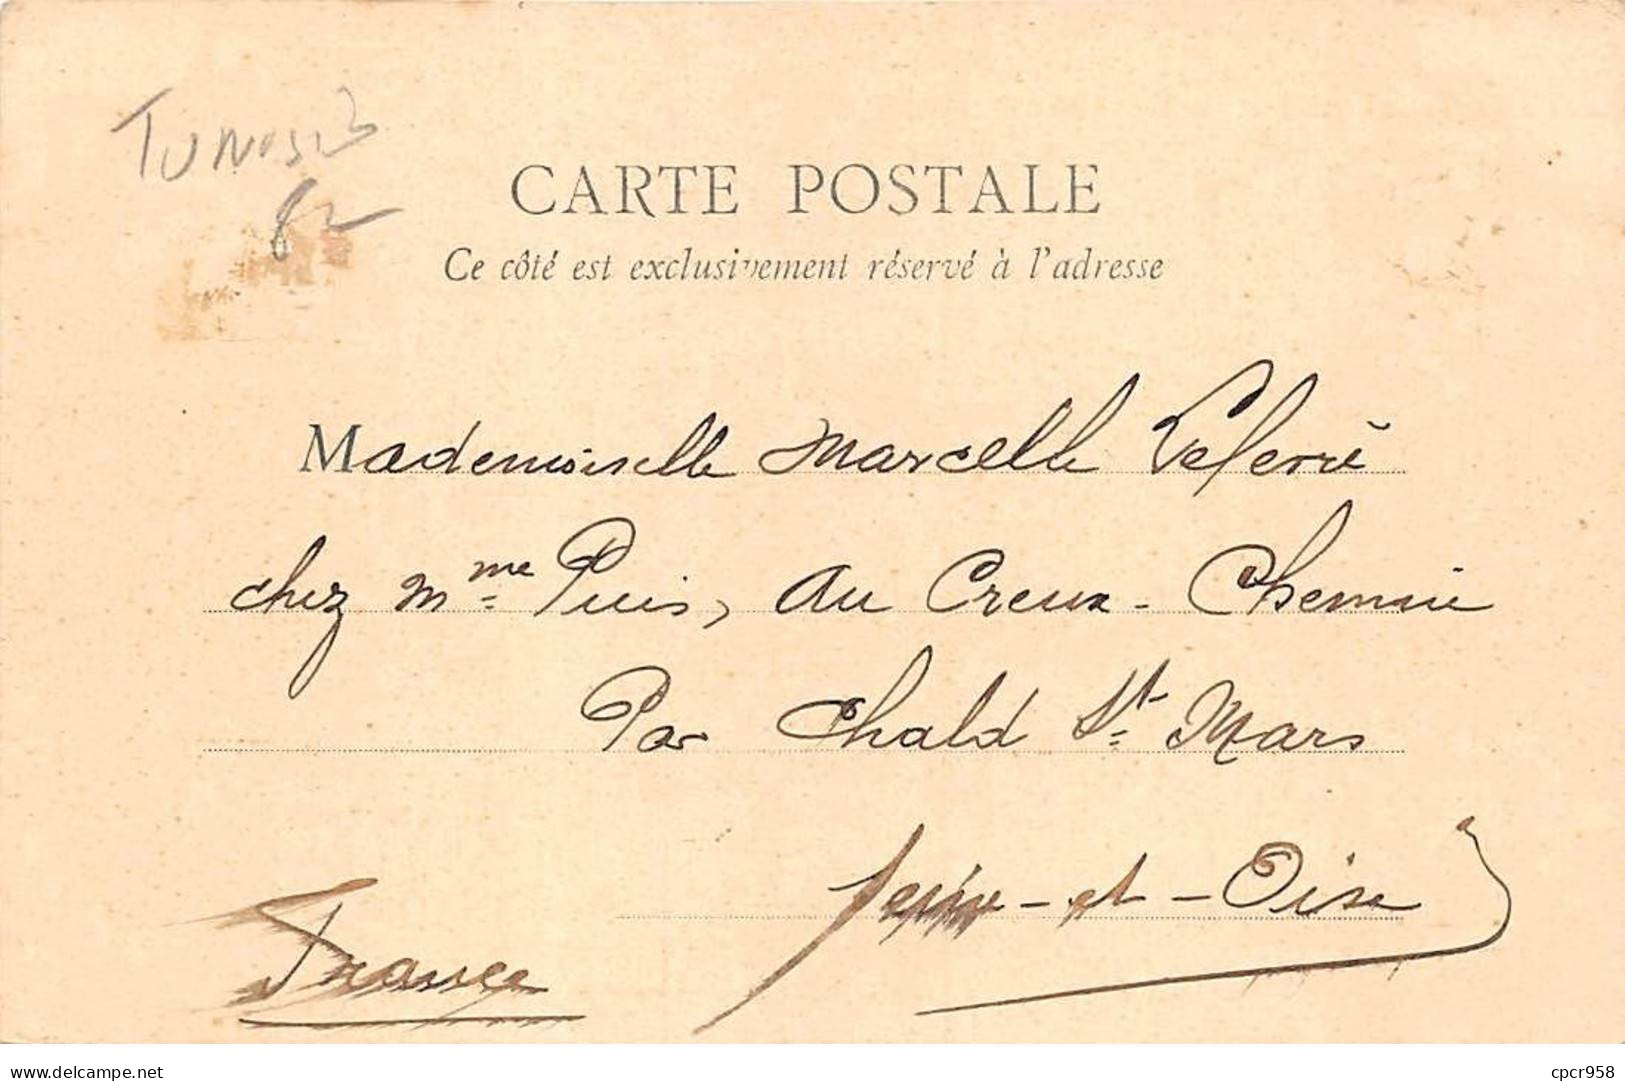 TUNISIE
82
CARTE POSTALE
Ce côté est exclusivement réservé à l'adresse
Mademoiselle Marcelle
chez Mme Puis, Au Creux-Chemin
Par Chald St Mars
Seine-et-Oise
France
delcampe.net
cpcr958